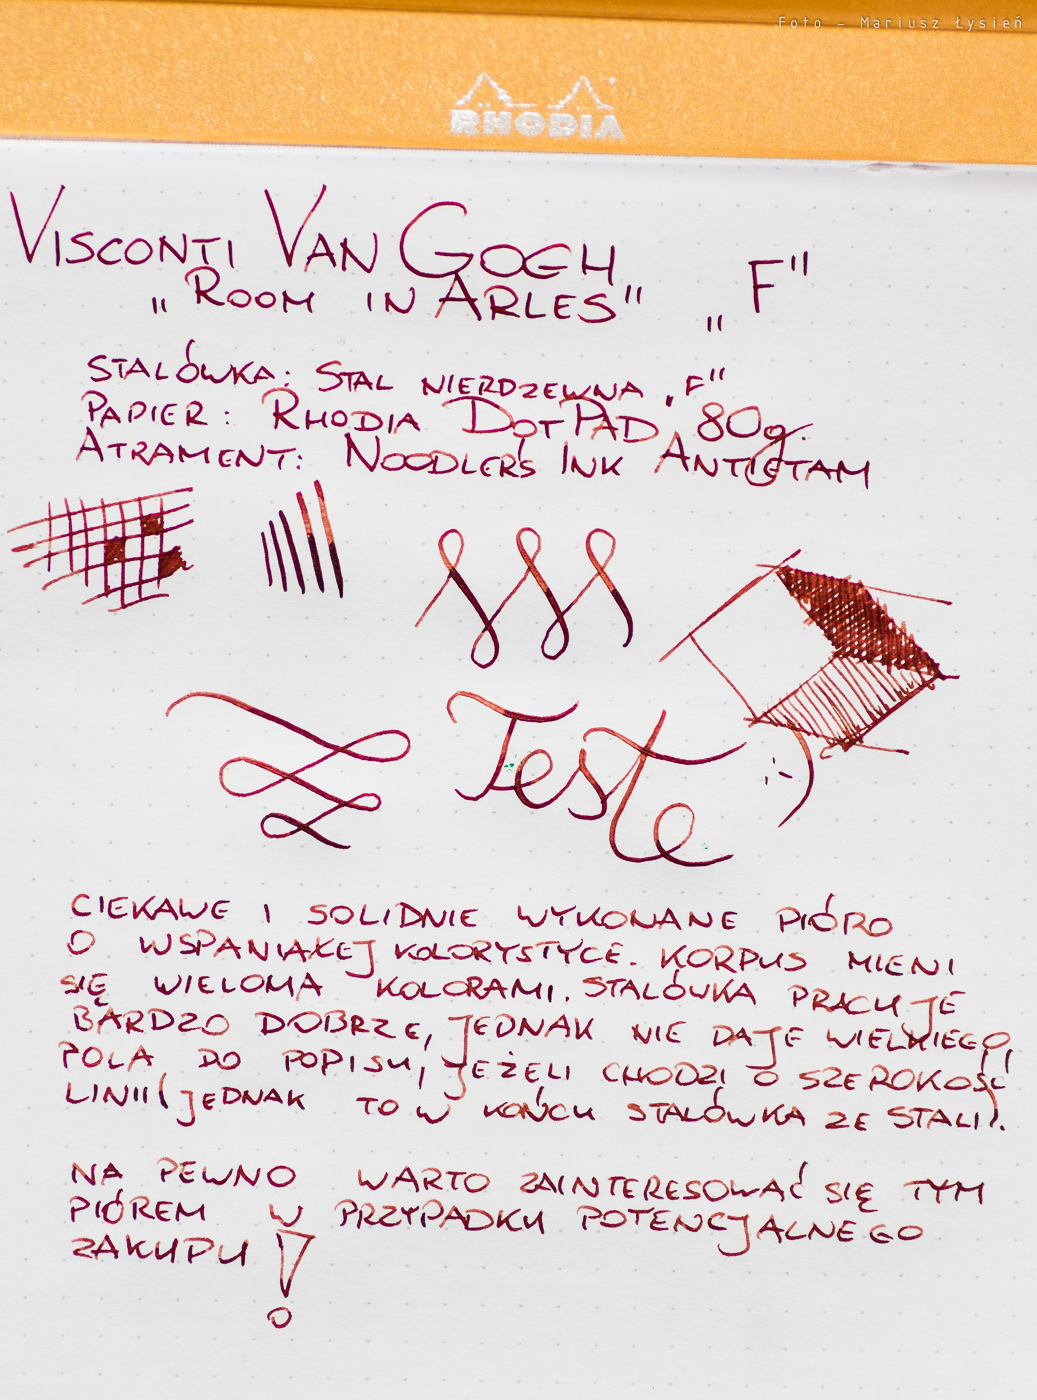 Foto - Mariusz Łysień
RHODIA
VISCONTI VAN GOGH
„ROOM IN ARLES” „F”
STALÓWKA: STAL NIERDZEWNA „F”
PAPIER: RHODIA DOTPAD 80g.
ATRAMENT: NOODLER'S INK ANTIETAM
Teste :)
CIEKAWE I SOLIDNIE WYKONANE PIÓRO
O WSPANIAŁEJ KOLORYSTYCE. KORPUS MIENI
SIĘ WIELOMA KOLORAMI. STALÓWKA PRACUJE
BARDZO DOBRZE, JEDNAK NIE DAJE WIELKIEGO
POLA DO POPISU, JEŻELI CHODZI O SZEROKOŚĆ
LINII (JEDNAK TO W KOŃCU STALÓWKA ZE STALI).
NA PEWNO WARTO ZAINTERESOWAĆ SIĘ TYM
PIÓREM W PRZYPADKU POTENCJALNEGO
ZAKUPU!